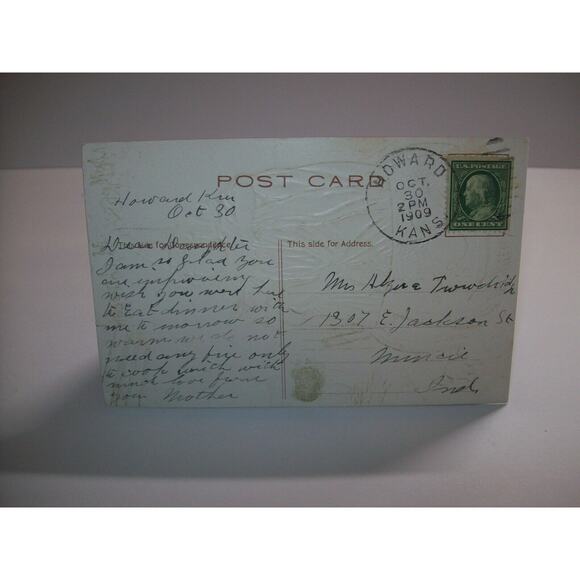 POST CARD
HOWARD
OCT.
30
2 PM
1909
KANS
U.S. POSTAGE
ONE CENT
Howard Kan
Oct 30
This side for Correspondence
This side for Address.
Dear Daughter
I am so glad you
are improving
wish you were here
to eat dinner with
me to morrow so
warm we do not
need any fire only
to cook with with
much love from
your Mother
Mrs
1307 E. Jackson St
Muncie
Ind.